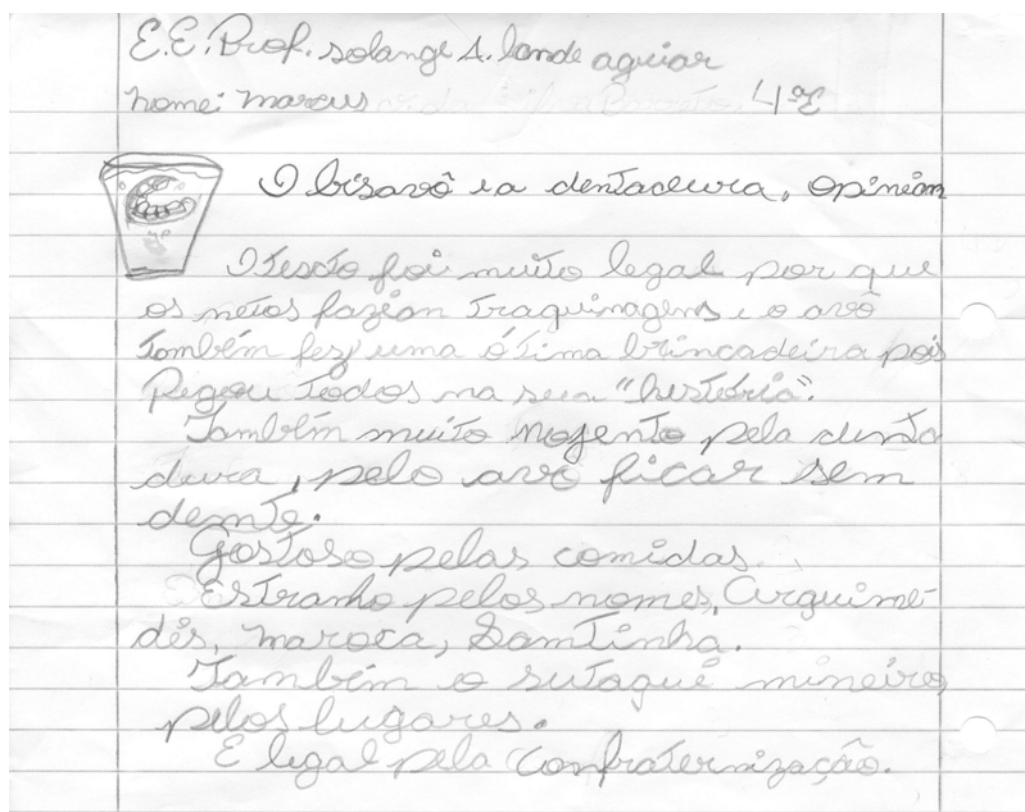 E.E. Prof. solange A. lande aguiar
nome: marcus 4ºE
O bisavô ea dentadeura. Opineam
O testo foi muito legal por que
os netos fazian traquinagens e o avô
também fez uma ótima brincadeira pois
Pegou todos na sua "história".
Também muito nojento pela denta
dura, pelo avô ficar sem
dente.
Gostoso pelas comidas.
Estranho pelos nomes, Arquime-
dis, maroca, Santinha.
Também o sutaque mineiro,
pelos lugares.
E legal pela Confraternização.